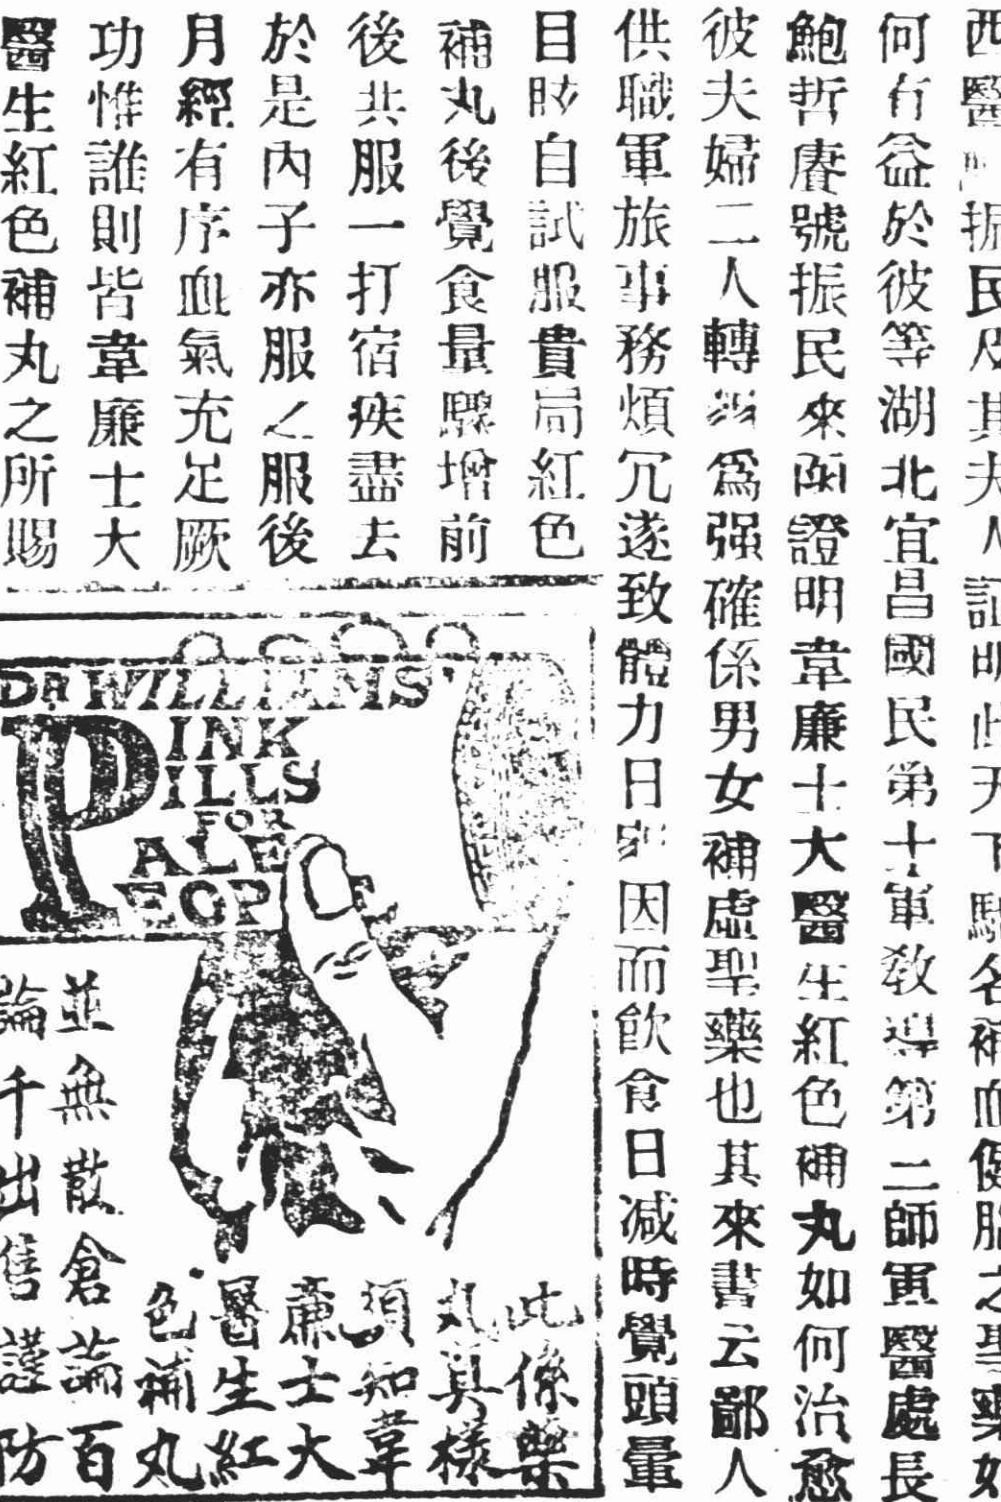 西醫振民及其夫人証明此天下馳名補血健腦之聖藥如
何有益於彼等湖北宜昌國民第十軍教導第二師軍醫處長
鮑哲賡號振民來函證明韋廉士大醫生紅色補丸如何治愈
彼夫婦二人轉弱爲强確係男女補虛聖藥也其來書云鄙人
供職軍旅事務煩冗遂致體力日弱因而飲食日減時覺頭暈
目眩自試服貴局紅色
補丸後覺食量驟增前
後共服一打宿疾盡去
於是內子亦服之服後
月經有序血氣充足厥
功惟誰則皆韋廉士大
醫生紅色補丸之所賜
DR WILLIAMS'
PINK
PILLS
FOR
PALE
PEOPLE
此係藥
丸真樣
須知韋
廉士大
醫生紅
色補丸
並無散倉論百
論千出售謹防